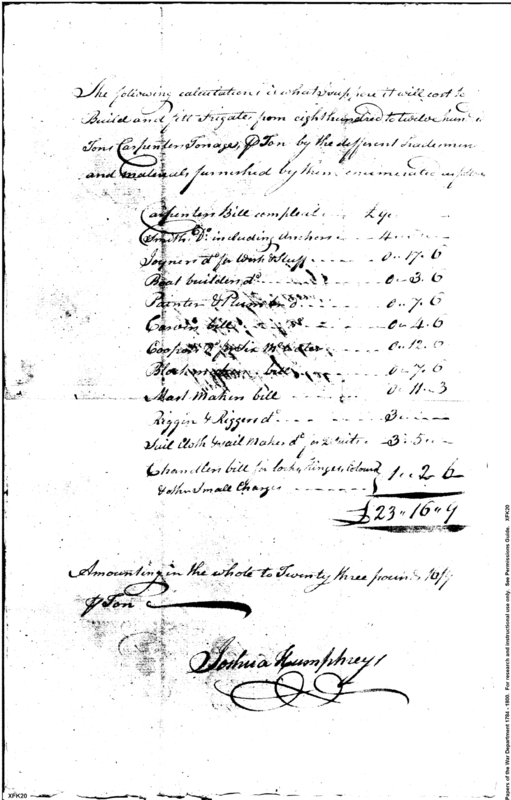 The following calculations is what I suppose it will cost to
Build and fitt Frigates from eight hundred to twelve hund
Tons Carpenters Tonages, ⅌ Ton by the different Tradesmen
and materials furnished by them enumerated as follows
Carpenters Bill compleat £ 9
Smiths Do. including Anchors 4
Joyners do for Work & Stuff 0 " 17 " 6
Boat builders do 0 " 3 " 6
Painter & Plumber do 0 " 7 " 6
Carvers bill 0 " 4 " 6
Coopers Do for Six Mo Water 0 " 12 " 0
Blockmakers bill 0 " 7 " 6
Mast Makers bill 0 " 11 " 3
Riggin & Riggers do 3
Sail Cloth & sail Makers do for 2 suits 3 " 5
Chandlers bill for locks, Hinges, Colours
& other Small Charges 1 " 2 " 6
£23 " 16 " 9
Amounting in the whole to Twenty three pounds 16/9
⅌ Ton
Joshua Humphreys
XFK20
Papers of the War Department 1784 - 1800. For research and instructional use only. See Permissions Guide. XFK20